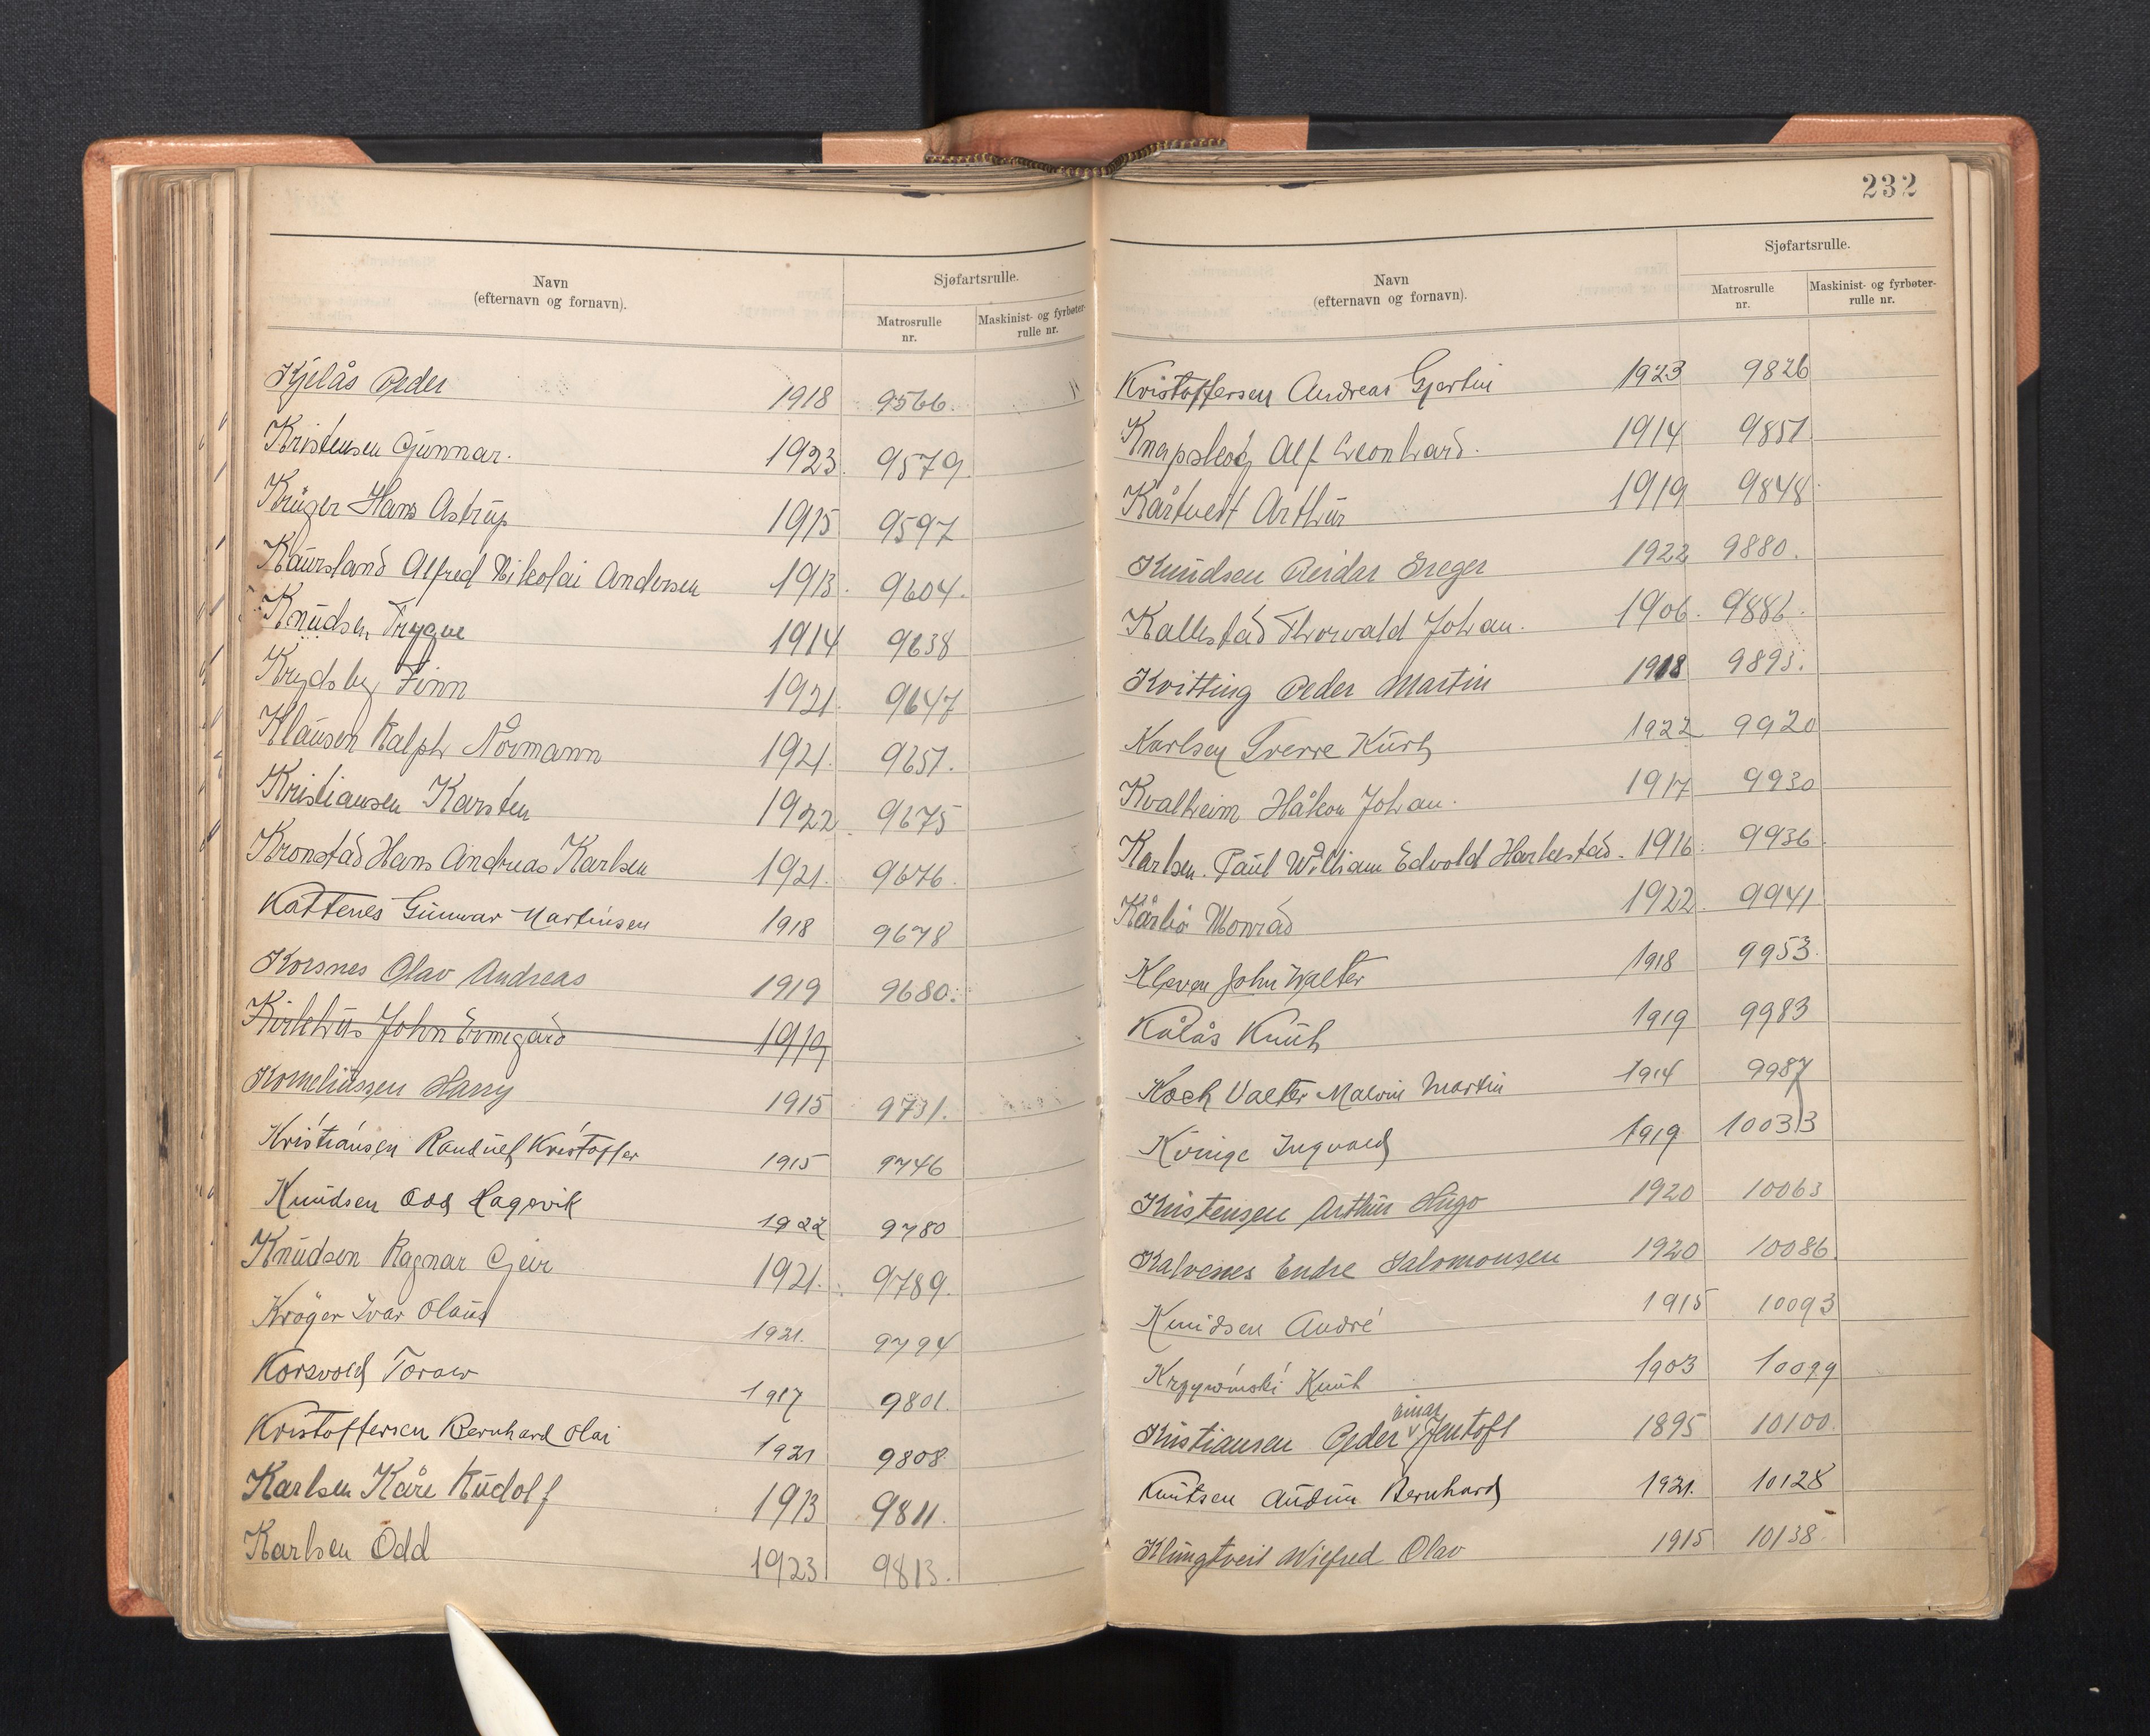 Navn
(efternavn og fornavn).
Sjøfartsrulle.
Matrosrulle
nr.
Maskinist- og fyrbøter-
rulle nr.
Kjelås Peder 1918 9566.
Kristensen Gunnar. 1923. 9579.
Krüger Hans Astrup 1915 9597
Kaursland Alfred Nikolai Andersen 1913. 9604.
Knudsen Trygve 1914 9638
Krydsby Finn 1921. 9647
Klausen Ralph Normann 1921. 9651.
Kristiansen Karsten 1922. 9675
Kronstad Hans Andreas Karlsen 1921. 9676.
Kattenes Gunnar Martinsen 1918 9678
Korsnes Olav Andreas 1919 9680.
Kirkhus John Ermegård 1919
Korneliussen Harry 1915 9731.
Kristiansen Randulf Kristoffer 1915 9746
Knudsen Odd Hagevik 1922 9780
Knudsen Ragnar Geir 1921. 9789.
Kröger Ivar Olaus 1921. 9794
Korsvold Toralv 1917 9801.
Kristoffersen Bernhard Olai 1921 9808
Karlsen Kåre Rudolf 1913 9811.
Karlsen Odd 1923 9813.
232
Navn
(efternavn og fornavn).
Sjøfartsrulle.
Matrosrulle
nr.
Maskinist- og fyrbøter-
rulle nr.
Kristoffersen Andreas Gjertin 1923 9826
Knapskog Alf Leonhard. 1914 9851
Kårtveit Arthur 1919 9848
Knudsen Reidar Greger 1922 9880.
Kallestad Thorvald Johan. 1906. 9886.
Kvitting Peder Martin 1918 9893.
Karlsen Sverre Kurt 1922 9920
Kvalheim Håkon Johan. 1917 9930
Karlsen. Paul William Edvold Harkestad. 1916. 9936.
Kårbø Monrad 1922. 9941
Kleven John Walter 1918 9953.
Kålås Knut 1919 9983
Koch Valter Malvin Martin 1914 9987
Kvinge Ingvald 1919 10033
Kristensen Arthur Hugo 1920 10063
Kalvenes Endre Salomonsen 1920 10086.
Knudsen André 1915 10093
Krzywinski Knut 1903 10099
Kristiansen Peder Einar Jentoft 1895 10100.
Knutsen Audun Bernhard 1921. 10128
Klungtveit Wilfred Olav 1915 10138.